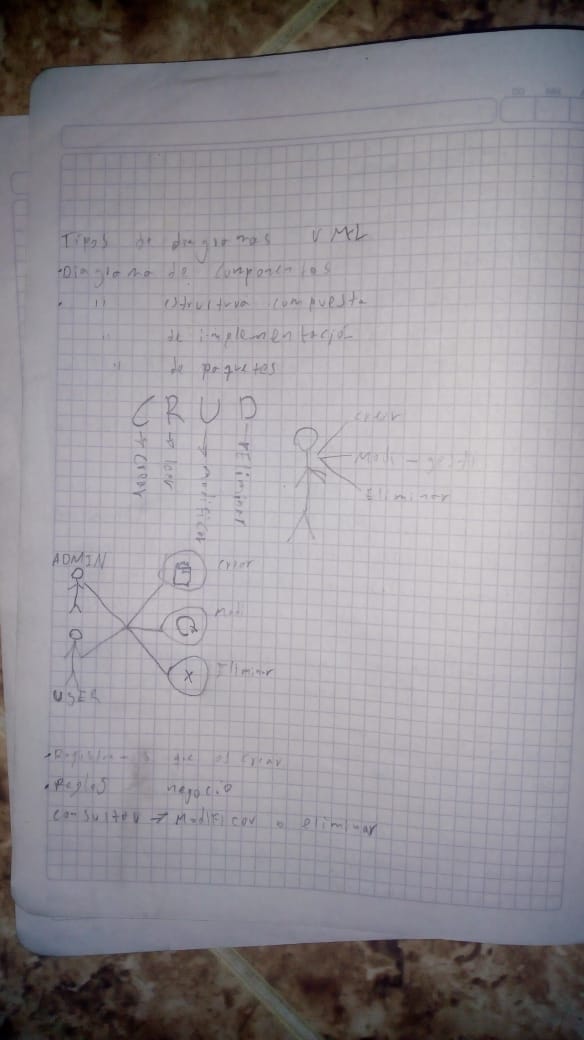 Tipos de diagramas UML
· Diagrama de componentes
· " estructura compuesta
" de implementación
" de paquetes
C R U D
→ crear
→ leer
→ modificar
→ Eliminar
crear
Eliminar
ADMIN
crear
Eliminar
USER
que es crear
· Reglas negocio
consultar → Modificar o eliminar